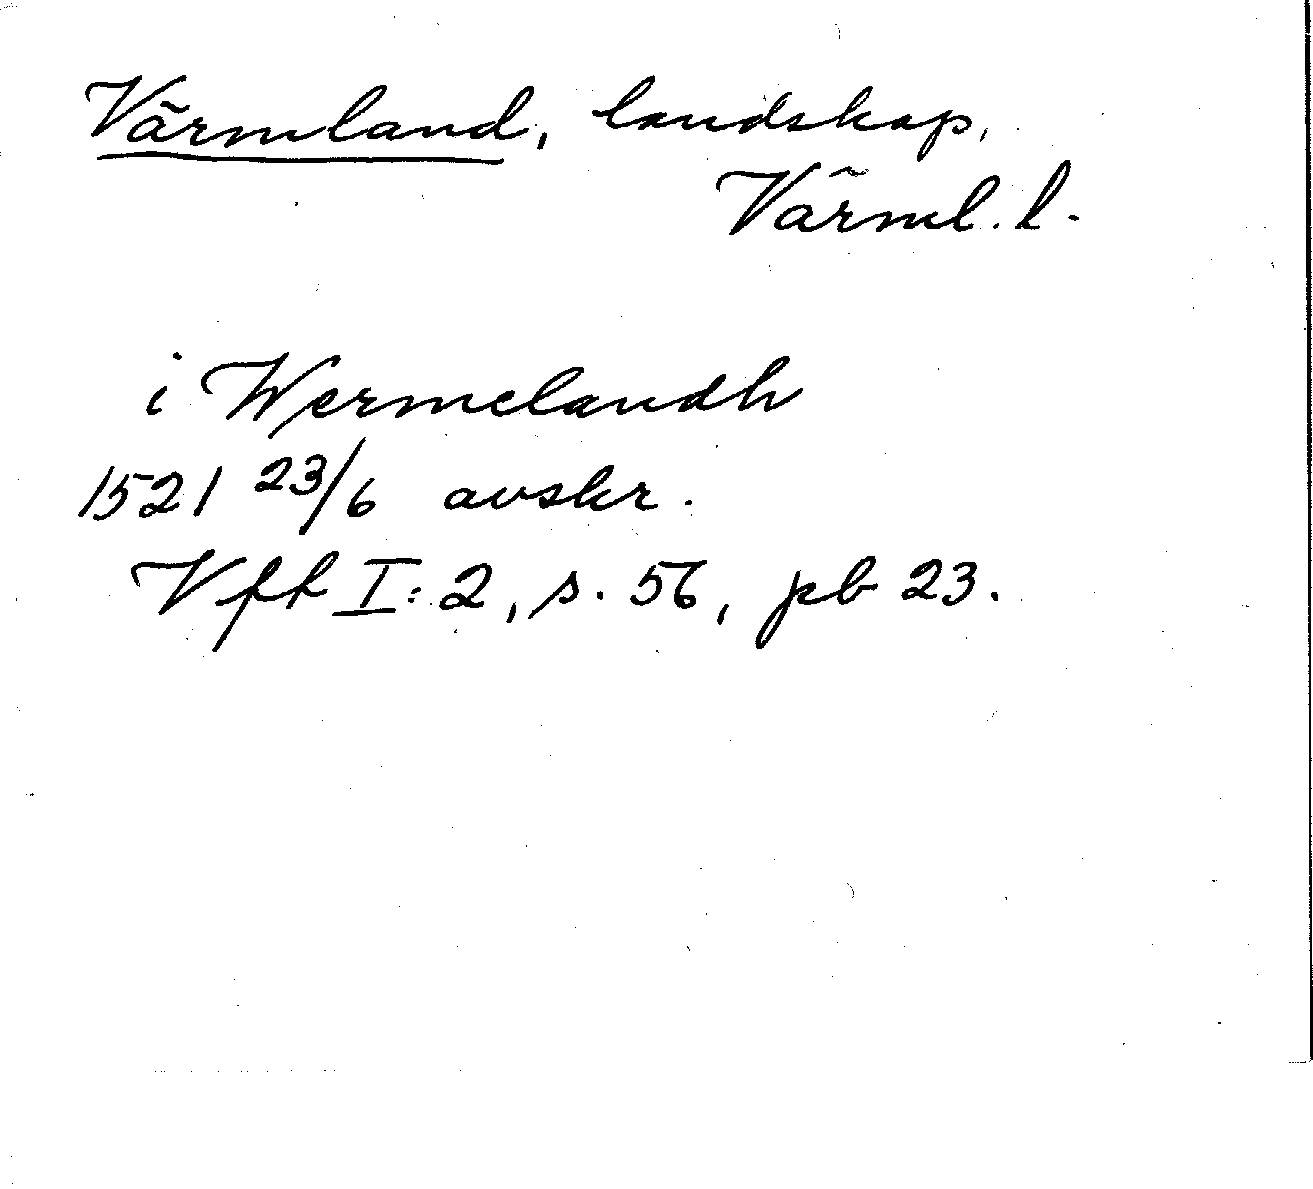 Värmland, landskap,
Värml. l.
i Wermelandh
1521 23/6 avskr.
Vfh I:2, s. 56, pb 23.